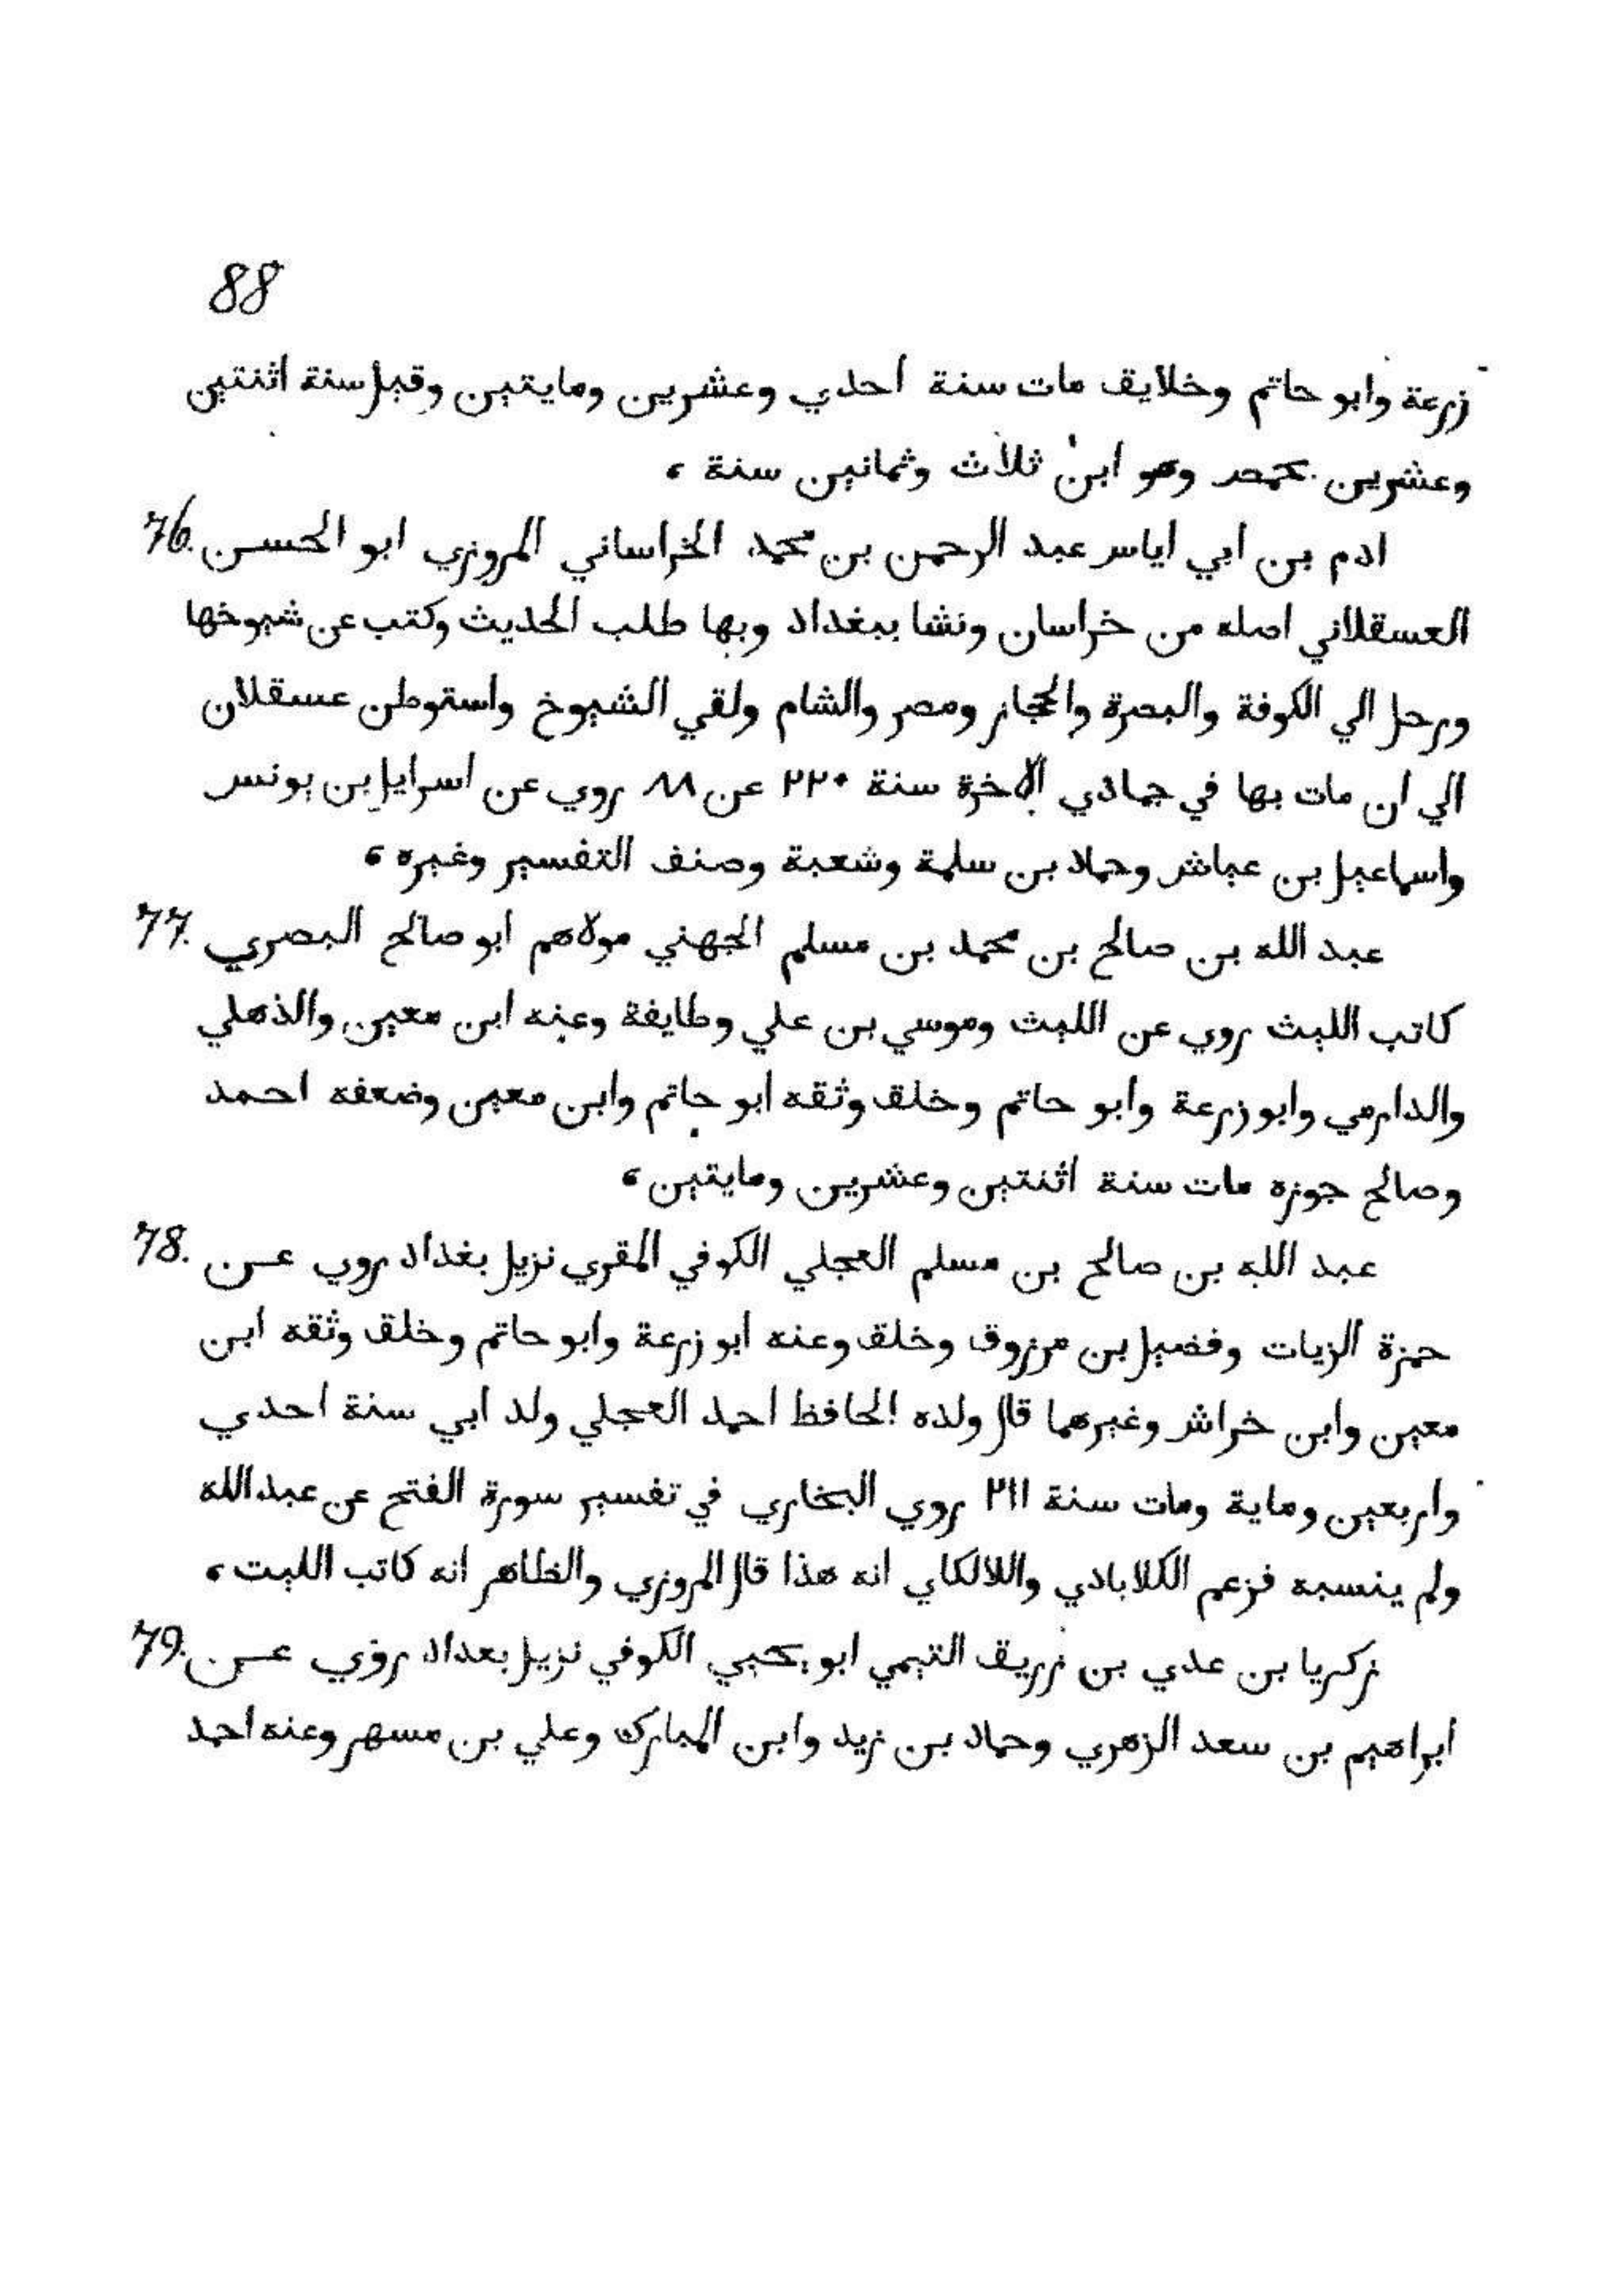 88
زرعة وابو حاتم وخلايق مات سنة احدي وعشرين ومايتين وقيل سنة اثنتين
وعشرين بحمص وهو ابن ثلاث وثمانين سنة ،
ادم بن ابي اياس عبد الرحمن بن محمد الخراساني المروزي ابو الحسن 76.
العسقلاني اصله من خراسان ونشا ببغداد وبها طلب الحديث وكتب عن شيوخها
ورحل الي الكوفة والبصرة والحجاز ومصر والشام ولقي الشيوخ واستوطن عسقلان
الي ان مات بها في جمادي الاخرة سنة ٢٢٠ عن ٨٨ روي عن اسرايل بن يونس
واسماعيل بن عياش وحماد بن سلمة وشعبة وصنف التفسير وغيره ،
عبد الله بن صالح بن محمد بن مسلم الجهني مولاهم ابو صالح البصري 77.
كاتب الليث روي عن الليث وموسي بن علي وطايفة وعنه ابن معين والذهلي
والدارمي وابو زرعة وابو حاتم وخلق وثقه ابو حاتم وابن معين وضعفه احمد
وصالح جوزه مات سنة اثنتين وعشرين ومايتين ،
عبد الله بن صالح بن مسلم العجلي الكوفي المقري نزيل بغداد روي عن 78.
حمزة الزيات وفضيل بن مرزوق وخلق وعنه ابو زرعة وابو حاتم وخلق وثقه ابن
معين وابن خراش وغيرهما قال ولده الحافظ احمد العجلي ولد ابي سنة احدي
واربعين وماية ومات سنة ٢١١ روي البخاري في تفسير سورة الفتح عن عبد الله
ولم ينسبه فزعم الكلاباذي واللالكاي انه هذا قال المروزي والظاهر انه كاتب الليت ،
زكريا بن عدي بن زريق التيمي ابو يحيي الكوفي نزيل بعداد روي عن 79.
ابراهيم بن سعد الزهري وحماد بن زيد وابن المبارك وعلي بن مسهر وعنه احمد